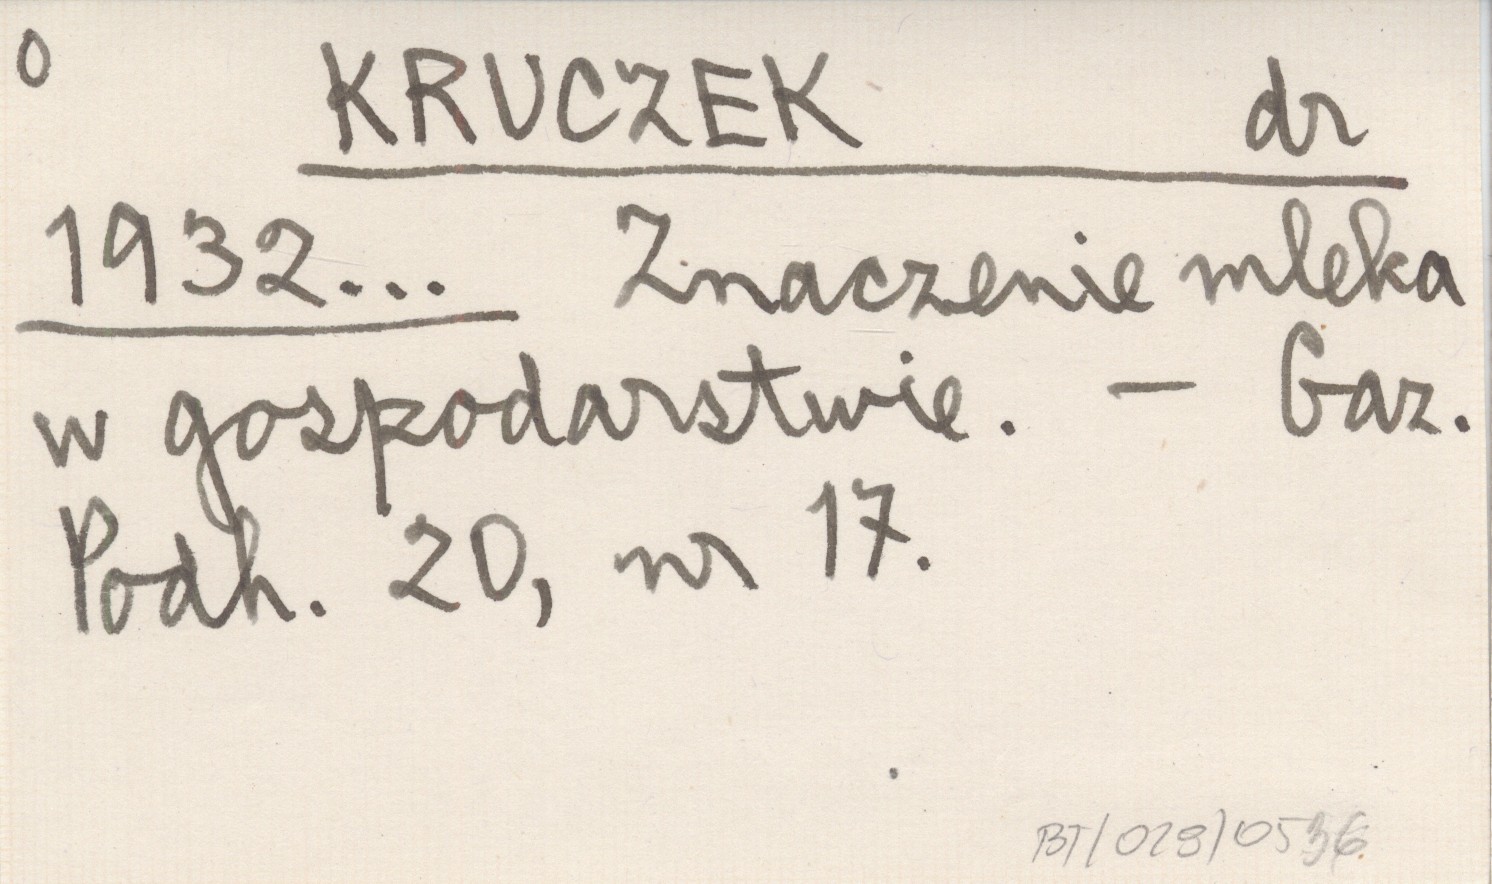 0
KRUCZEK dr
1932... Znaczenie mleka
w gospodarstwie. — Gaz.
Podh. 20, nr 17.
BT/028/0536